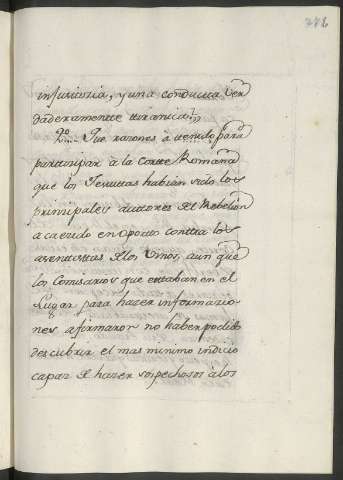 injusticia, y una conducta ver
daderamente tiranica?
2º... Que razones á tenido para
participar à la Corte Romana
que los Jesuitas habian sido los
principales autores de la Rebelion
acaecida en Oporto contra los
asentistas de los Vinos, aun que
los Comisarios que estaban en el
Lugar para hazer informacio
nes afirmaron no haber podido
descubrir el mas minimo indicio
capaz de hazer sospechosos álos